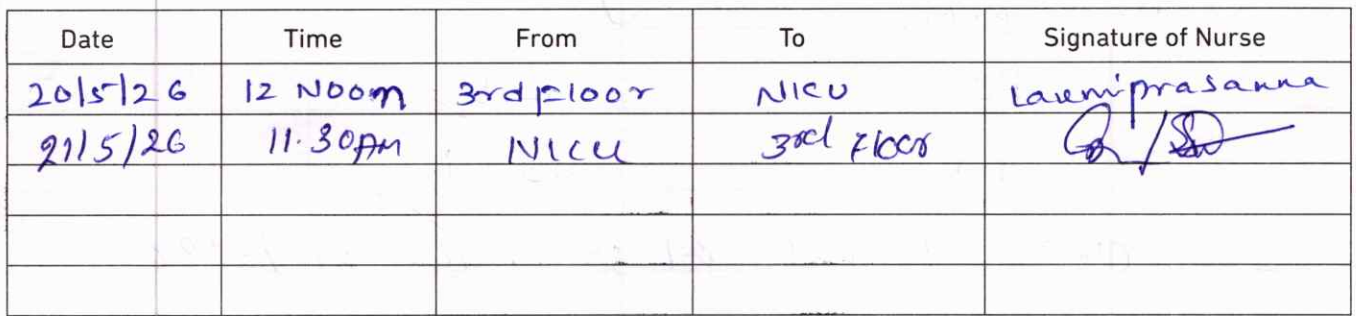 Date Time From To Signature of Nurse
20/5/26 12 Noon 3rd Floor NICU Laxmiprasanna
21/5/26 11.30AM NICU 3rd Floor